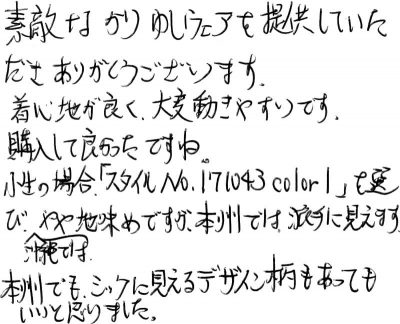 素敵なかりゆしウェアを提供していた
だきありがとうございます。
着心地が良く、大変動きやすいです。
購入して良かったですね。
小生の場合、「スタイルNo.171043 color1」を選
び、やや地味めですが、本州では、派手に見えます
沖縄では、
本州でも、シックに見えるデザイン柄もあっても
いいと思いました。